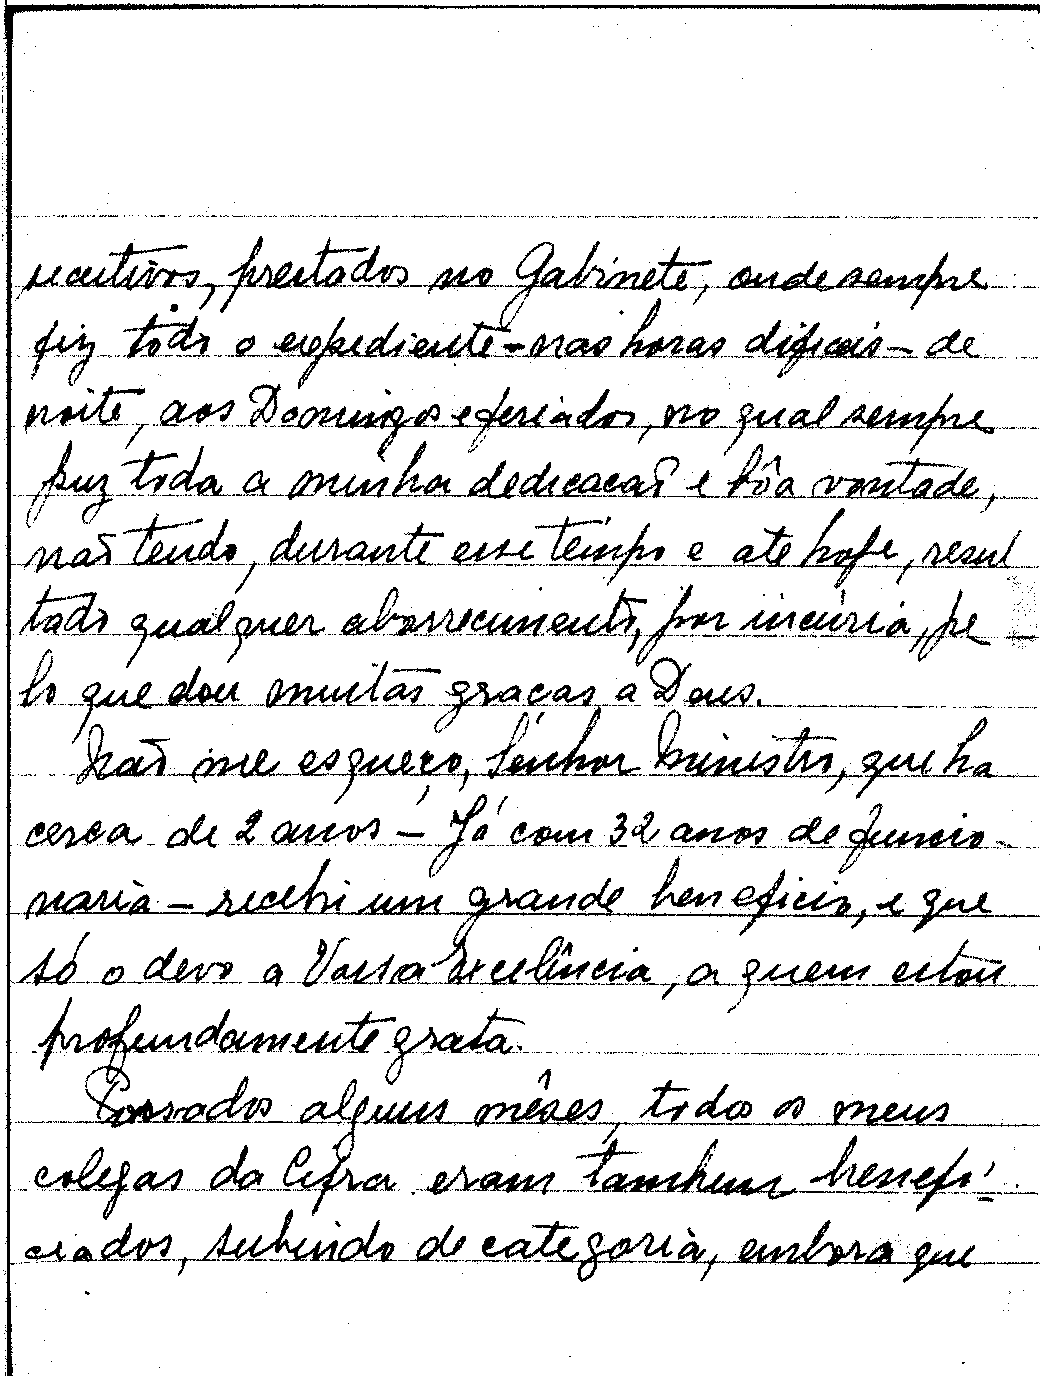 secutivos, prestados no Gabinete, onde sempre
fiz todo o expediente - nas horas dificeis - de
noite, aos Domingos e feriados, no qual sempre
puz toda a minha dedicacaõ e bôa vontade,
naõ tendo, durante esse tempo e ate hoje, resul
tado qualquer aborrecimento, por incúria, pe
lo que dou muitas graças a Deus.
Naõ me esqueço, Senhor Ministro, que ha
cerca de 2 anos - Já com 32 anos de funcio-
naria - recebi um grande beneficio, e que
só o devo a Vossa Excelência, a quem estou
profundamente grata.
Passados alguns mêses, todos os meus
colegas da Cifra eram tambem benefi-
ciados, subindo de categoria, embora que